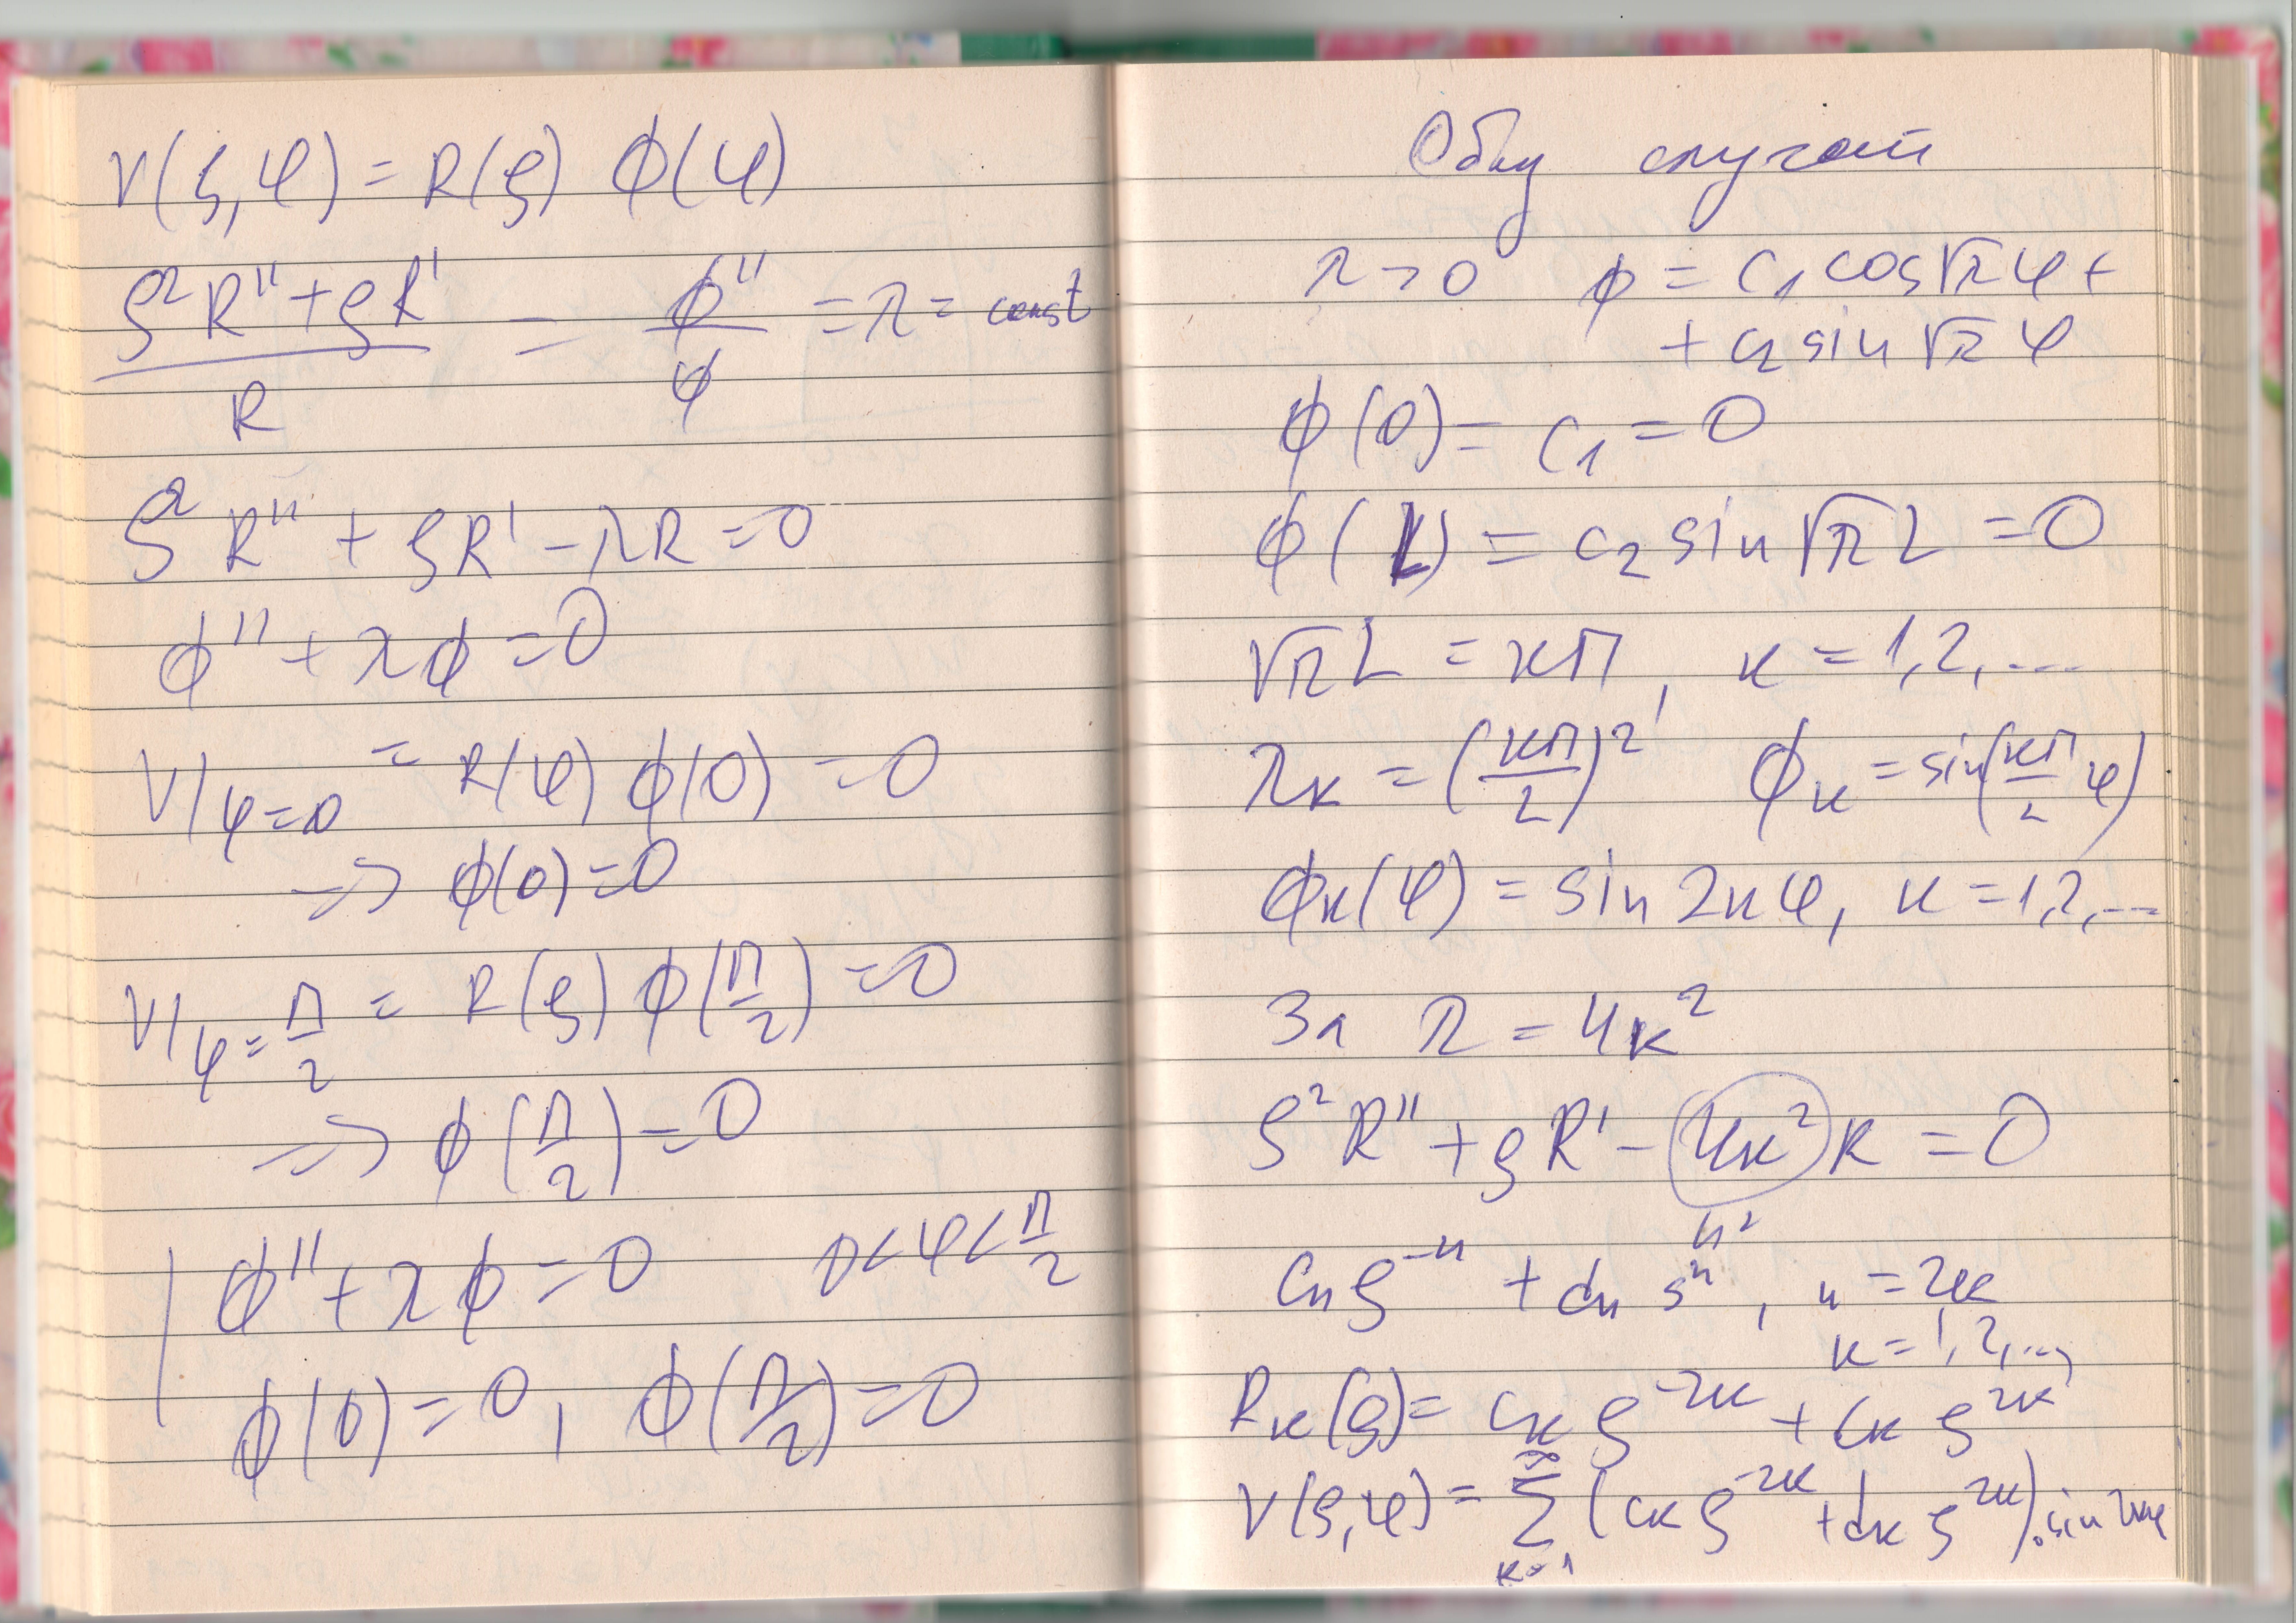 V(ρ,φ) = R(ρ) ϕ(φ)
(ρ²R'' + ρR')/R = - ϕ''/ϕ = λ = const
ρ² R'' + ρR' - λR = 0
ϕ'' + λϕ = 0
V|φ=0 = R(φ) ϕ(0) = 0
→ ϕ(0) = 0
V|φ=π/2 = R(ρ) ϕ(π/2) = 0
=> ϕ(π/2) = 0
ϕ'' + λϕ = 0 0<φ<π/2
ϕ(0) = 0, ϕ(π/2) = 0
Общ случай
λ>0 ϕ = c₁ cos√λ φ +
+ c₂ sin √λ φ
ϕ(0) = c₁ = 0
ϕ(L) = c₂ sin √λ L = 0
√λ L = kπ, k = 1,2,...
λk = (kπ/L)² ϕk = sin(kπ/L φ)
ϕk(φ) = sin 2kφ, k = 1,2,...
За λ = 4k²
ρ²R'' + ρR' - 4k² R = 0
n²
cn ρ⁻ⁿ + dn ρⁿ, n = 2k
k = 1,2,...
Rk(ρ) = ck ρ⁻²ᵏ + ck ρ²ᵏ
V(ρ,φ) = ∑k=1^∞ (ck ρ⁻²ᵏ + dk ρ²ᵏ).sin 2kφ